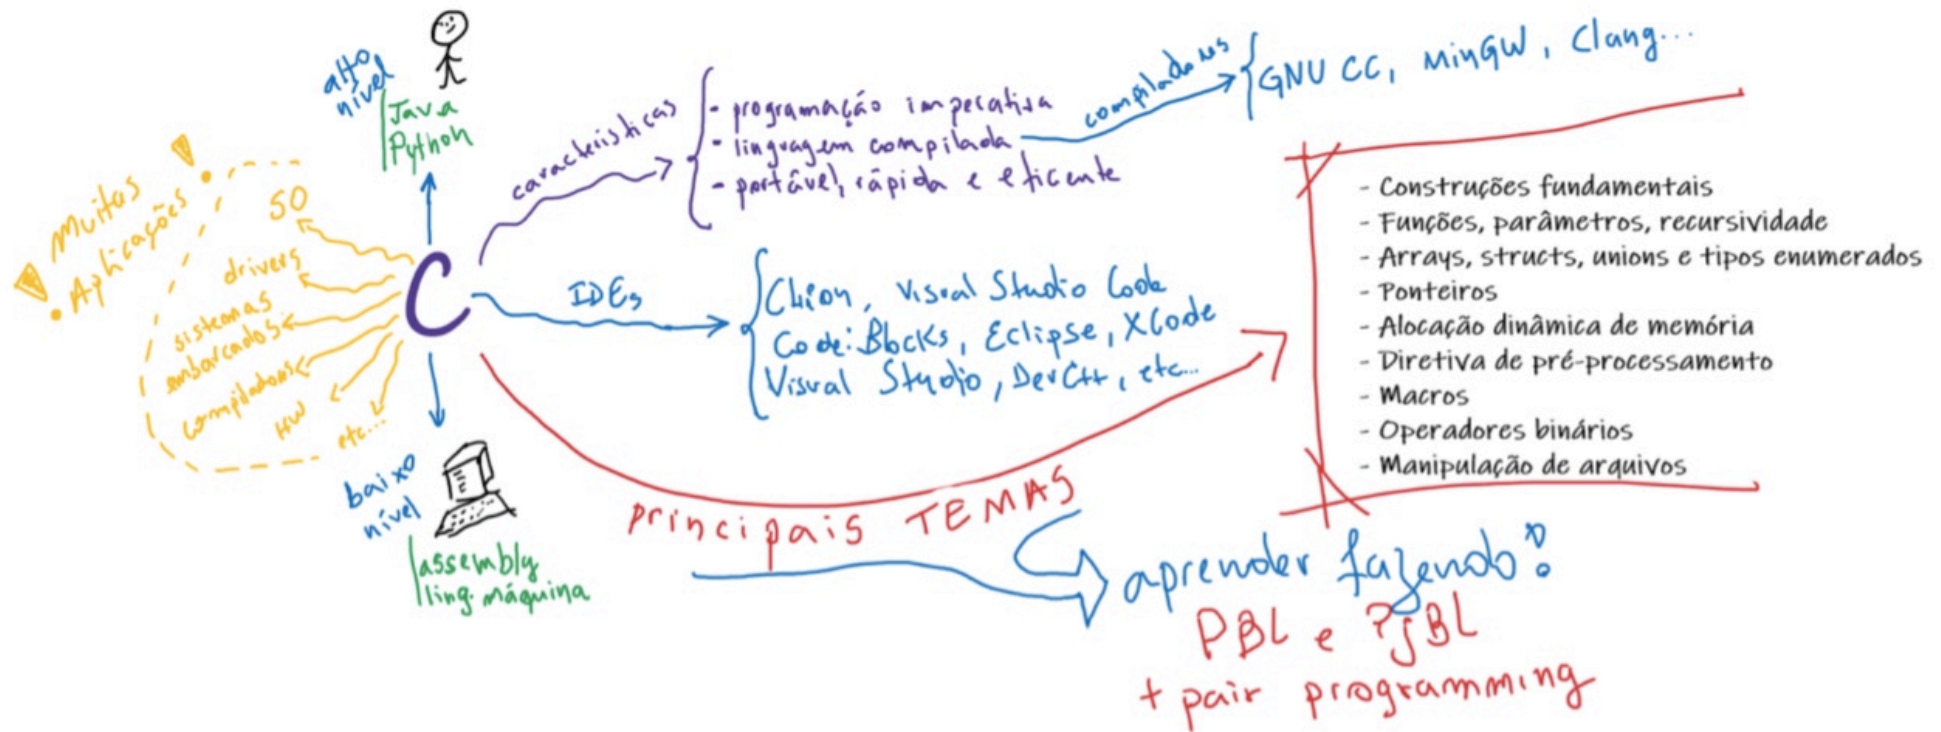 alto
nível
Java
Python
muitas
Aplicações
SO
drivers
sistemas
embarcados
compiladores
HW
etc...
C
baixo
nível
assembly
ling. máquina
características
- programação imperativa
- linguagem compilada
- portável, rápida e eficiente
compiladores
GNU CC, MinGW, Clang...
IDEs
CLion, Visual Studio Code
Code::Blocks, Eclipse, XCode
Visual Studio, DevC++, etc...
principais TEMAS
- Construções fundamentais
- Funções, parâmetros, recursividade
- Arrays, structs, unions e tipos enumerados
- Ponteiros
- Alocação dinâmica de memória
- Diretiva de pré-processamento
- Macros
- Operadores binários
- Manipulação de arquivos
aprender fazendo!
PBL e PjBL
+ pair programming